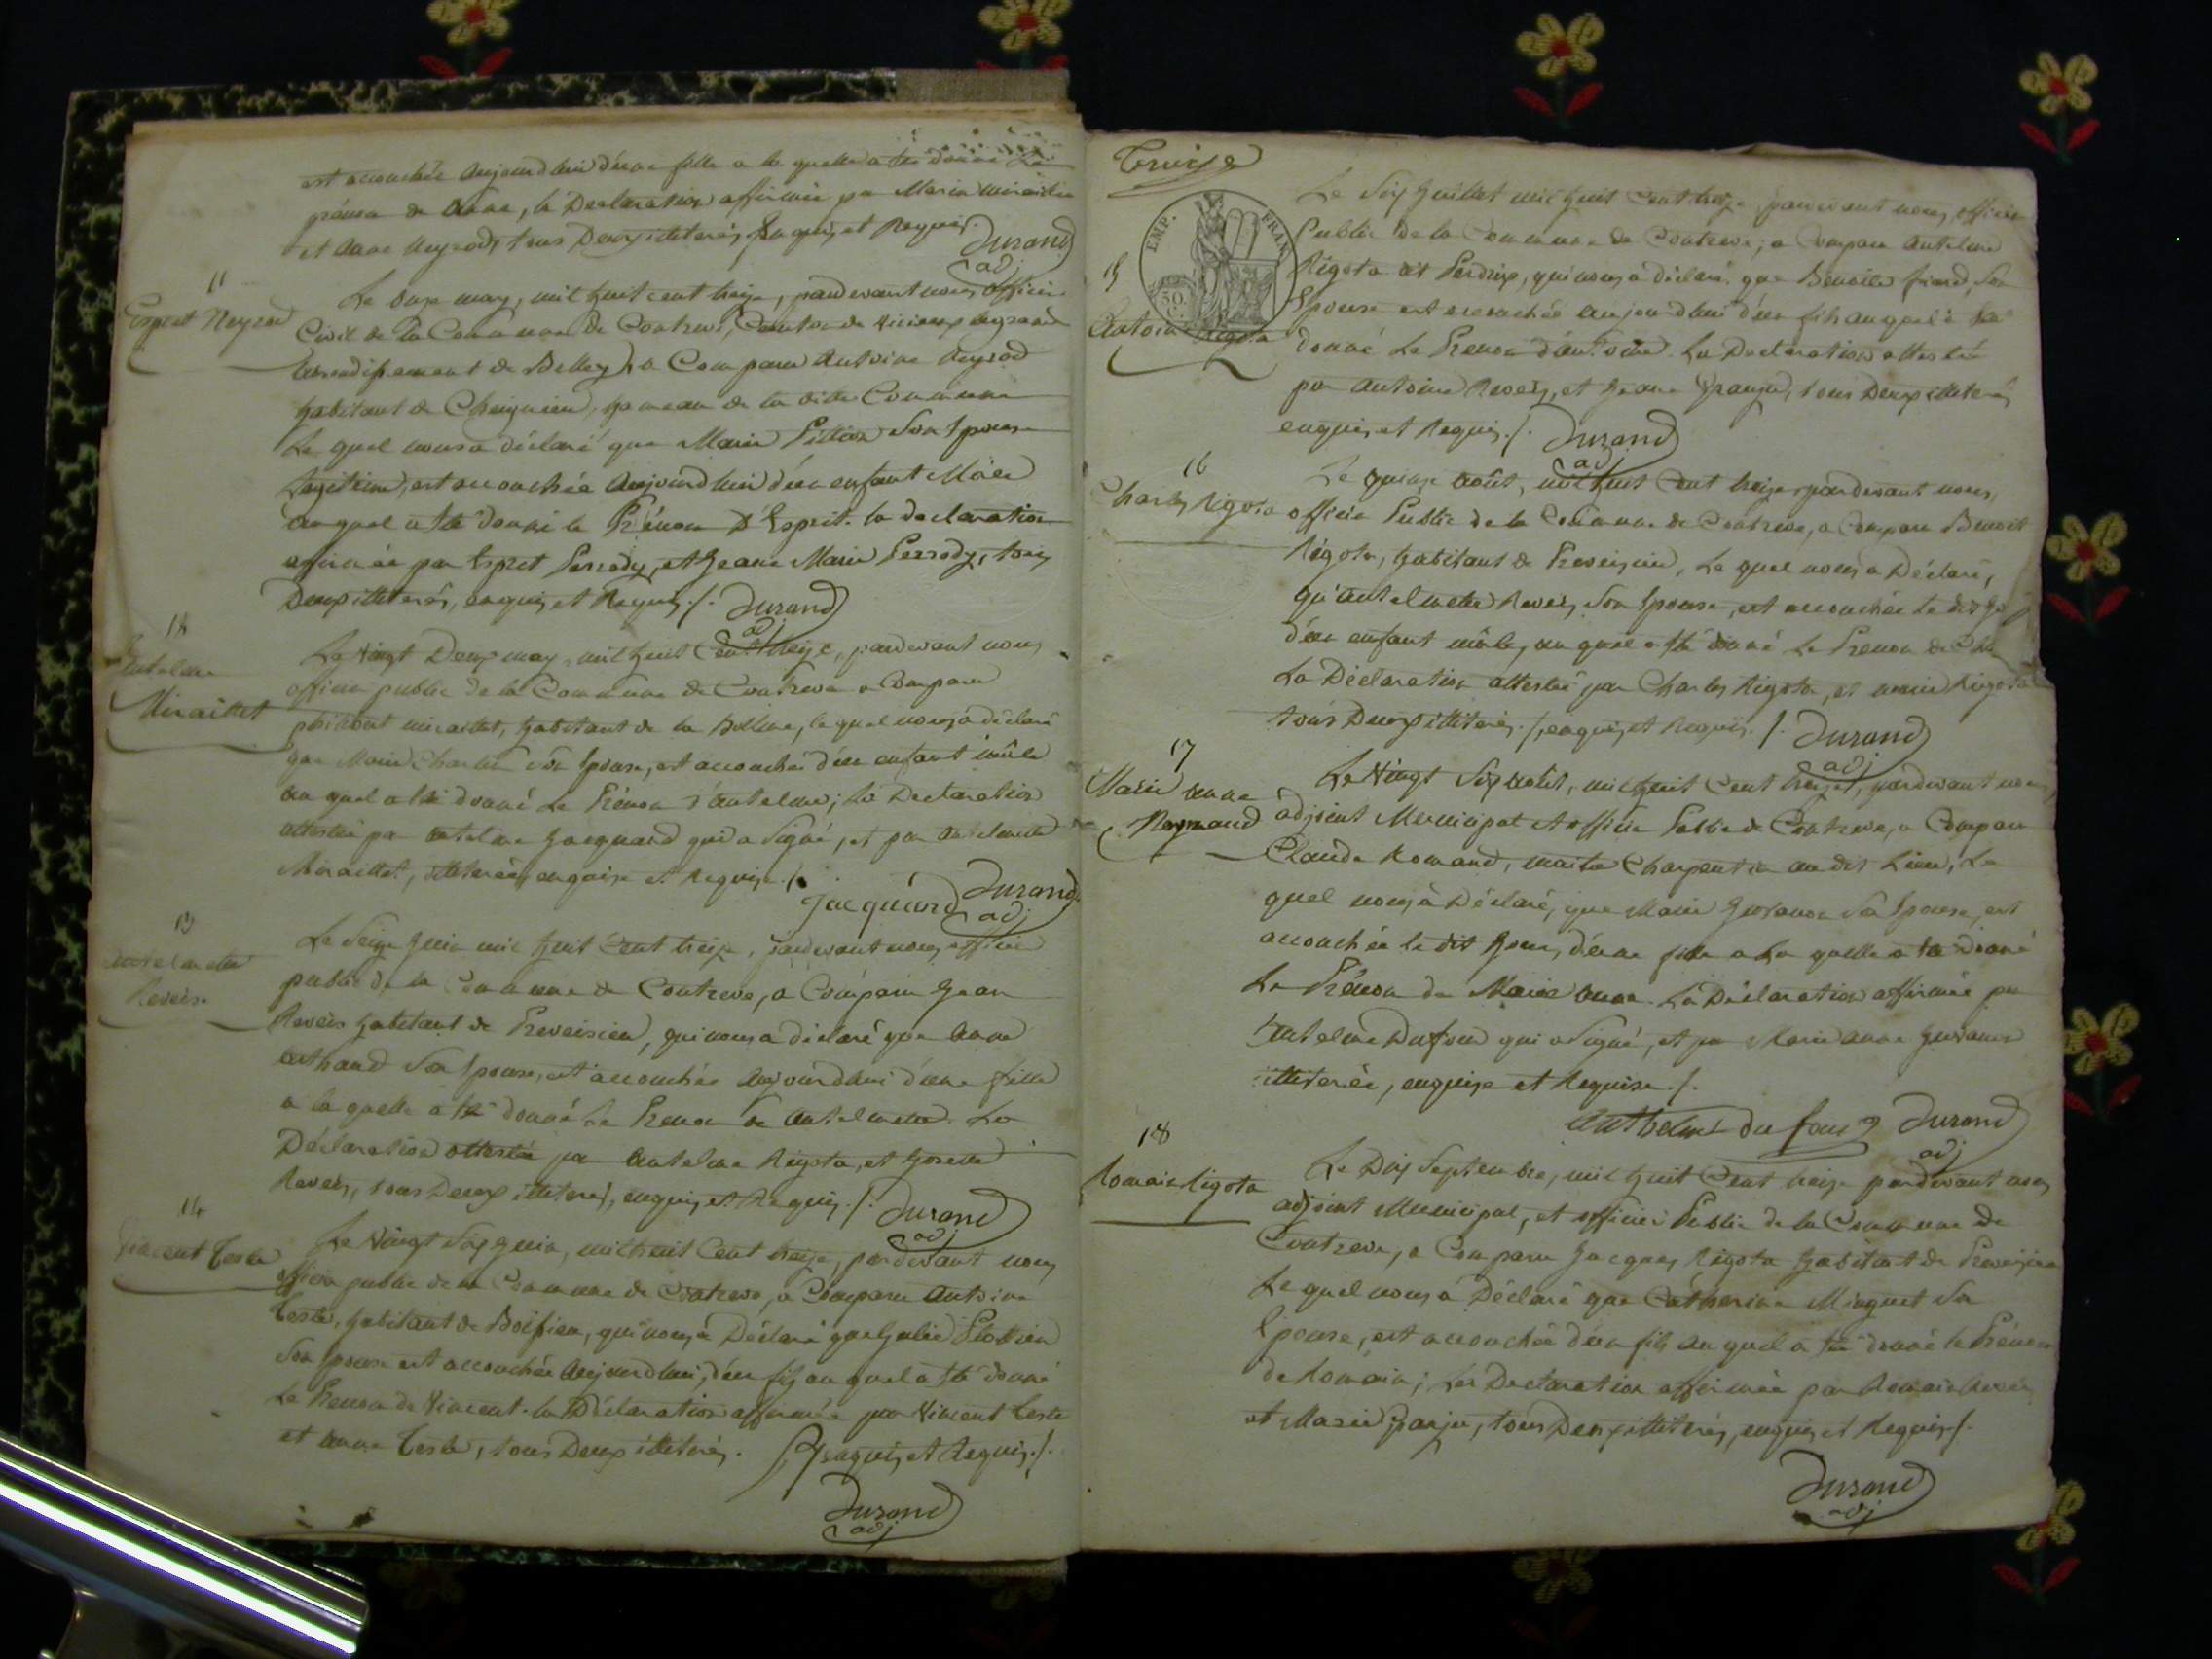 est accouchée aujourd'hui d'une fille a la quelle a été donné le
prénom de anne, la Declaration affirmée par Marie miraillet
et anne Neyrod, tous Deux illiterés enquis et Requis.
Durand
adj
11
Esprit Neyrod
Le onze may, mil huit cent treize, pardevant nous officier
Civil de la Commune de Contrevoz, Canton de Virieux legrand
arrondissement de Belley, a Comparu Antoine Neyrod
habitant de Cheignieu, hameau de la dite Commune
Le quel nous a déclaré que Marie Pillion Son Epouse
Legitime, est accouchée aujourd'hui d'un enfant Mâle
au quel a été donné le Prénom d'Esprit. la declaration
affirmée par Esprit Perrody, et Jeane Marie Perrody, tous
Deux illiterés, enquis et Requis ./.
Durand
adj
12
Antelme
Miraillet
Le Vingt Deux may, mil huit Cent treize, pardevant nous
officier public de la Commune de Contrevoz a Comparu
miraillet, habitant de la, le quel nous a déclaré
que Marie Charlin Son Epouse, est accouchée d'un enfant mâle
au quel a été donné Le Prénom d'antelme; La Declaration
attestée par antelme Jacquand qui a Signé, et par antelmette
Miraillet, illiterée, enquise et Requise ./.
Jacquand
Durand
adj
13
Antelmette
Reveis
Le Seize Juin mil huit Cent treize, pardevant nous officier
public de la Commune de Contrevoz, a Comparu Jean
Reveis habitant de Preveisieu, qui nous a déclaré que Anne
Son Epouse, est accouchée aujourd'hui d'une fille
a la quelle a été donné Le Prenom de Antelmette. La
Déclaration attestée par Antelme Rigota, et Josette
Reveis, tous Deux illiterés, enquis et Requis ./.
Durand
adj
14
Vincent Teste
Le Vingt Six Juin, mil huit Cent treize, pardevant nous
officier public de la Commune de Contrevoz, a Comparu Antoine
Teste, habitant de Boissieu, qui nous a Déclaré que Julie
Son Epouse est accouchée aujourd'hui, d'un fils au quel a été donné
Le Prenom de Vincent. la Déclaration affirmée par Vincent Teste
et anne Teste, tous Deux illiterés. enquis et Requis ./.
Durand
adj
Treize
EMP. FRAN
50 C.
15
Antoine Rigota
Le Six Juillet mil huit Cent treize, pardevant nous, officier
Public de la Commune de Contrevoz, a Comparu Antelme
Rigota dit Perdrix, qui nous a déclaré que Benoite, Son
Epouse est accouchée aujourd'hui d'un fils au quel a été
donné Le Prenom d'antoine. La Declaration attestée
par Antoine Reveis, et Jeane, tous Deux illiterés
enquis et Requis ./.
Durand
adj
16
Charles Rigota
Le quinze août, mil huit Cent treize, pardevant nous,
officier Public de la Commune de Contrevoz, a Comparu Benoit
Rigota, habitant de Preveisieu, Le quel nous a Déclaré,
qu'Antelmette Reveis, Son Epouse, est accouchée le dit
d'un enfant mâle, au quel a été donné Le Prenom de
La Déclaration attestée par Charles Rigota, et marie Rigota
tous Deux illiterés ./. enquis et Requis ./.
Durand
adj
17
Marie anne
Reymand
Le Vingt Six août, mil huit Cent treize, pardevant nous
adjoint Municipal et officier Public de Contrevoz, a Comparu
Claude, maitre Charpentier au dit Lieu, Le
quel nous a Déclaré, que Marie Son Epouse, est
accouchée le dit Jour, d'une fille a La quelle a été donné
Le Prénom de Marie Anne. La Déclaration affirmée par
Antelme Dufour qui a Signé, et par Marie anne
illiterée, enquise et Requise ./.
Anthelme du four
Durand
adj
18
Romain Rigota
Le Dix Septembre, mil huit Cent treize pardevant nous
adjoint Municipal, et officier Public de la Commune de
Contrevoz, a Comparu Jacques Rigota habitant de Preveisieu
Le quel nous a Déclaré que Catherine Minguet Son
Epouse, est accouchée d'un fils au quel a été donné le Prénom
de Romain; La Declaration affirmée par Romain Reveis
et Marie, tous Deux illiterés, enquis et Requis ./.
Durand
adj